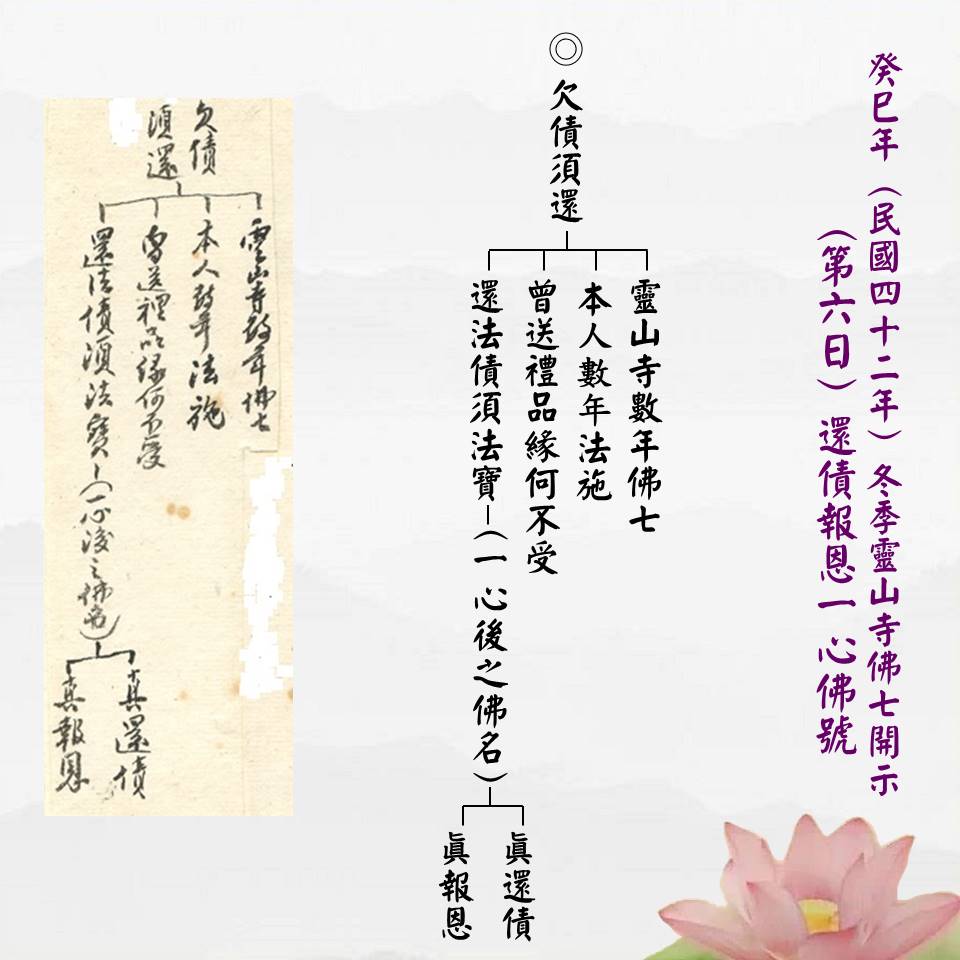 癸巳年（民國四十二年）冬季靈山寺佛七開示
（第六日）還債報恩一心佛號
◎欠債須還
靈山寺數年佛七
本人數年法施
曾送禮品緣何不受
還法債須法寶－（一心後之佛名）
眞還債
眞報恩
欠債
須還
靈山寺數年佛七
本人数年法施
曾送禮品緣何不受
還法債須法寶－（一心後之佛名）
真還債
真報恩